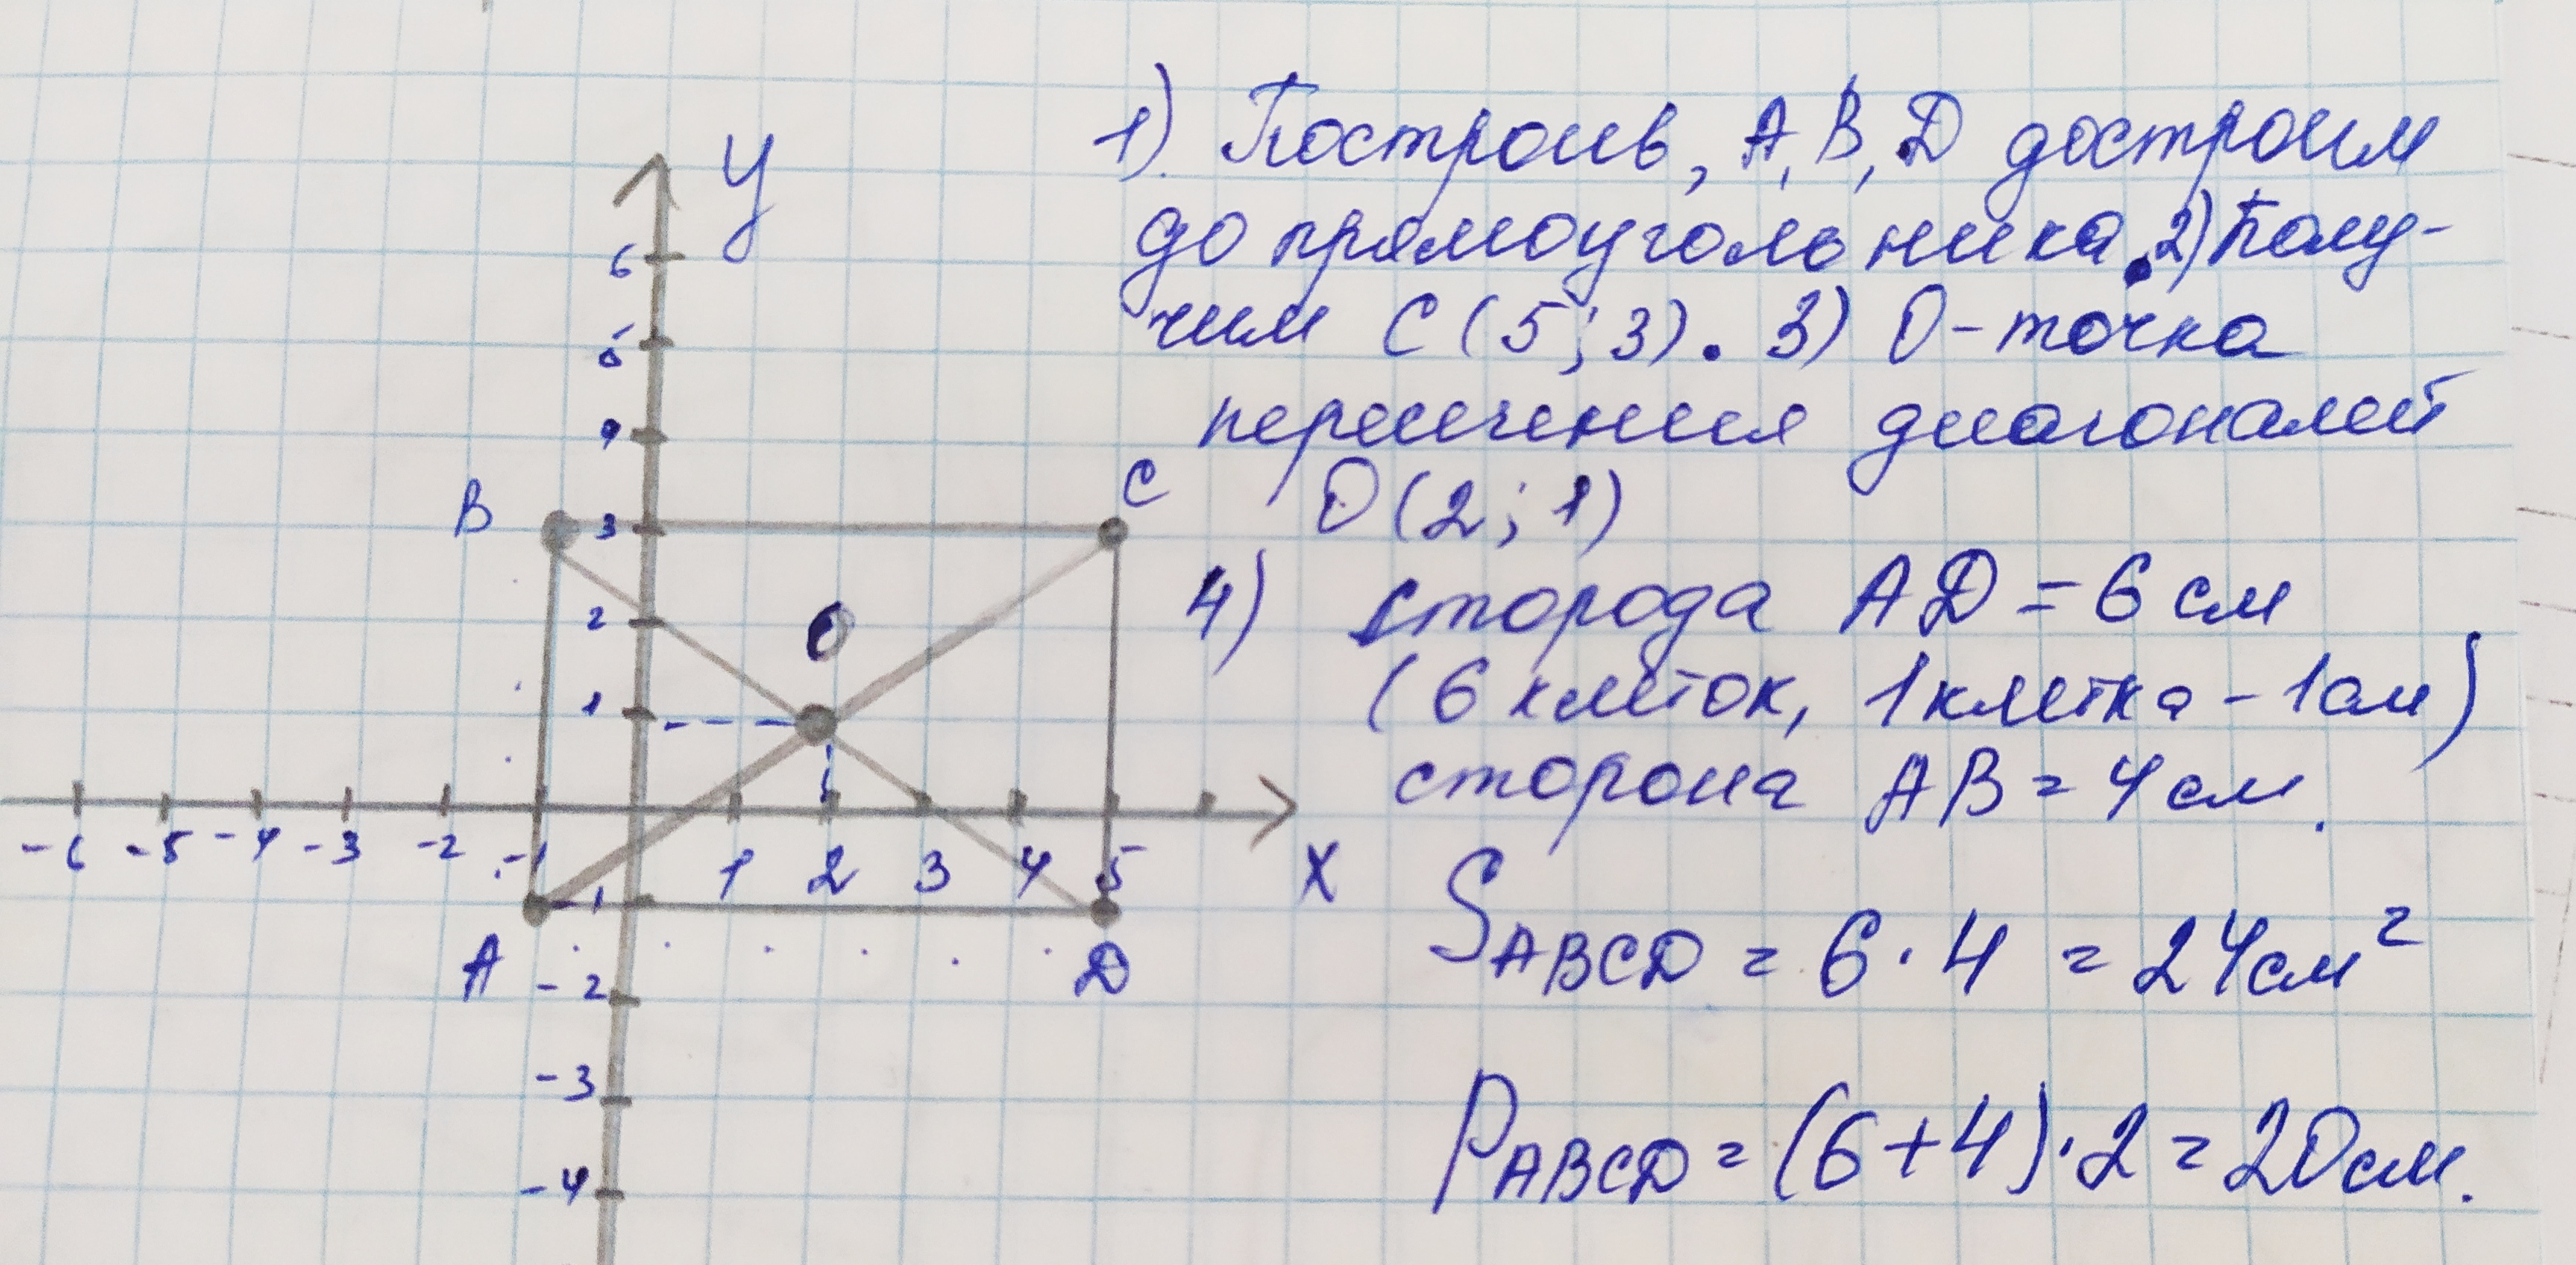 1). Построив, А, В, D достроим
до прямоугольника. 2) Полу-
чим С (5; 3). 3) О - точка
пересечения диагоналей
О (2; 1)
4) сторода AD = 6 см
(6 клеток, 1 клетка - 1 см)
сторона AB = 4 см.
S ABCD = 6 · 4 = 24 см²
P ABCD = (6+4) · 2 = 20 см.
У
6
5
4
B 3 C
2 О
1
-6 -5 -4 -3 -2 -1 1 2 3 4 5 X
-1
A -2 D
-3
-4